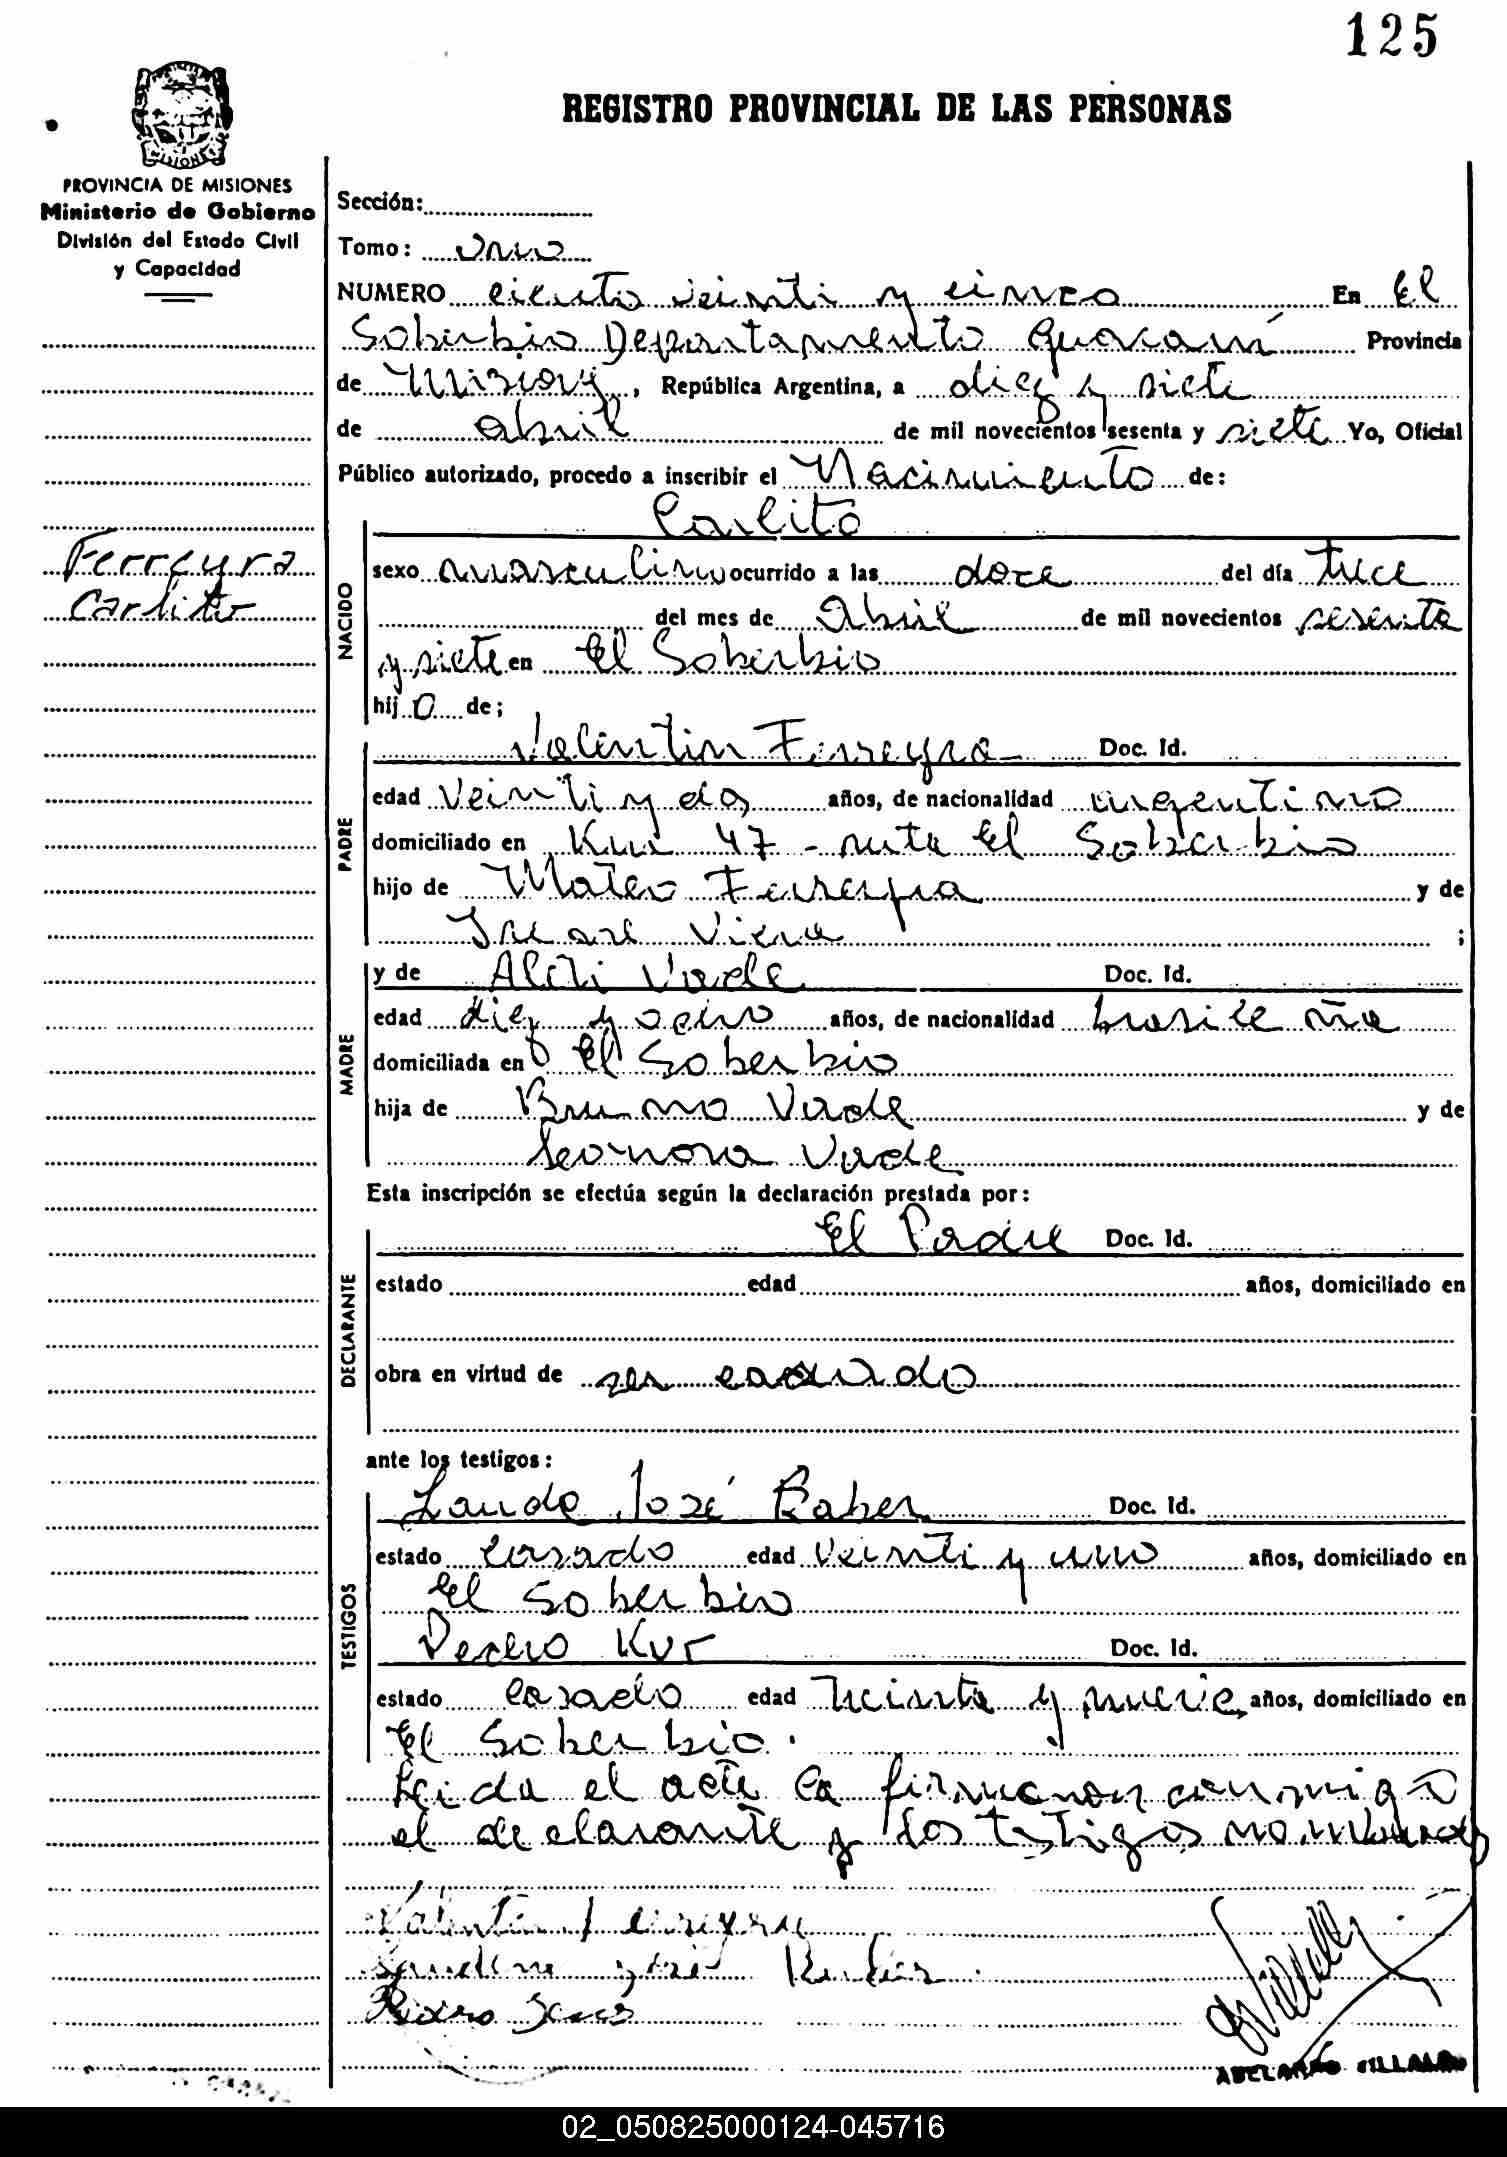 125
REGISTRO PROVINCIAL DE LAS PERSONAS
MISIONES
PROVINCIA DE MISIONES
Ministerio de Gobierno
División del Estado Civil
y Capacidad
Ferreyra
Carlito
Sección:
Tomo: uno
NUMERO ciento veinti y cinco En El
Soberbio Departamento Guaraní Provincia
de Misiones, República Argentina, a diez y siete
de abril de mil novecientos sesenta y siete Yo, Oficial
Público autorizado, procedo a inscribir el Nacimiento de:
Carlito
NACIDO
sexo masculino ocurrido a las doce del día trece
del mes de Abril de mil novecientos sesenta
y siete en El Soberbio
hijo de;
PADRE
Valentin Ferreyra Doc. Id.
edad veinti y dos años, de nacionalidad argentino
domiciliado en Km 47 - ruta El Soberbio
hijo de Mateo Ferreyra y de
Viera ;
MADRE
y de Verde Doc. Id.
edad diez y ocho años, de nacionalidad brasileña
domiciliada en El Soberbio
hija de Bruno Verde y de
Leonora Verde
Esta inscripción se efectúa según la declaración prestada por:
DECLARANTE
El Padre Doc. Id.
estado edad años, domiciliado en
obra en virtud de ser casado
ante los testigos:
TESTIGOS
José Doc. Id.
estado casado edad veinti y uno años, domiciliado en
El Soberbio
Pedro Doc. Id.
estado casado edad treinta y nueve años, domiciliado en
El Soberbio.
Leida el acta la firmaron conmigo
el declarante y los testigos nombrados
02_050825000124-045716